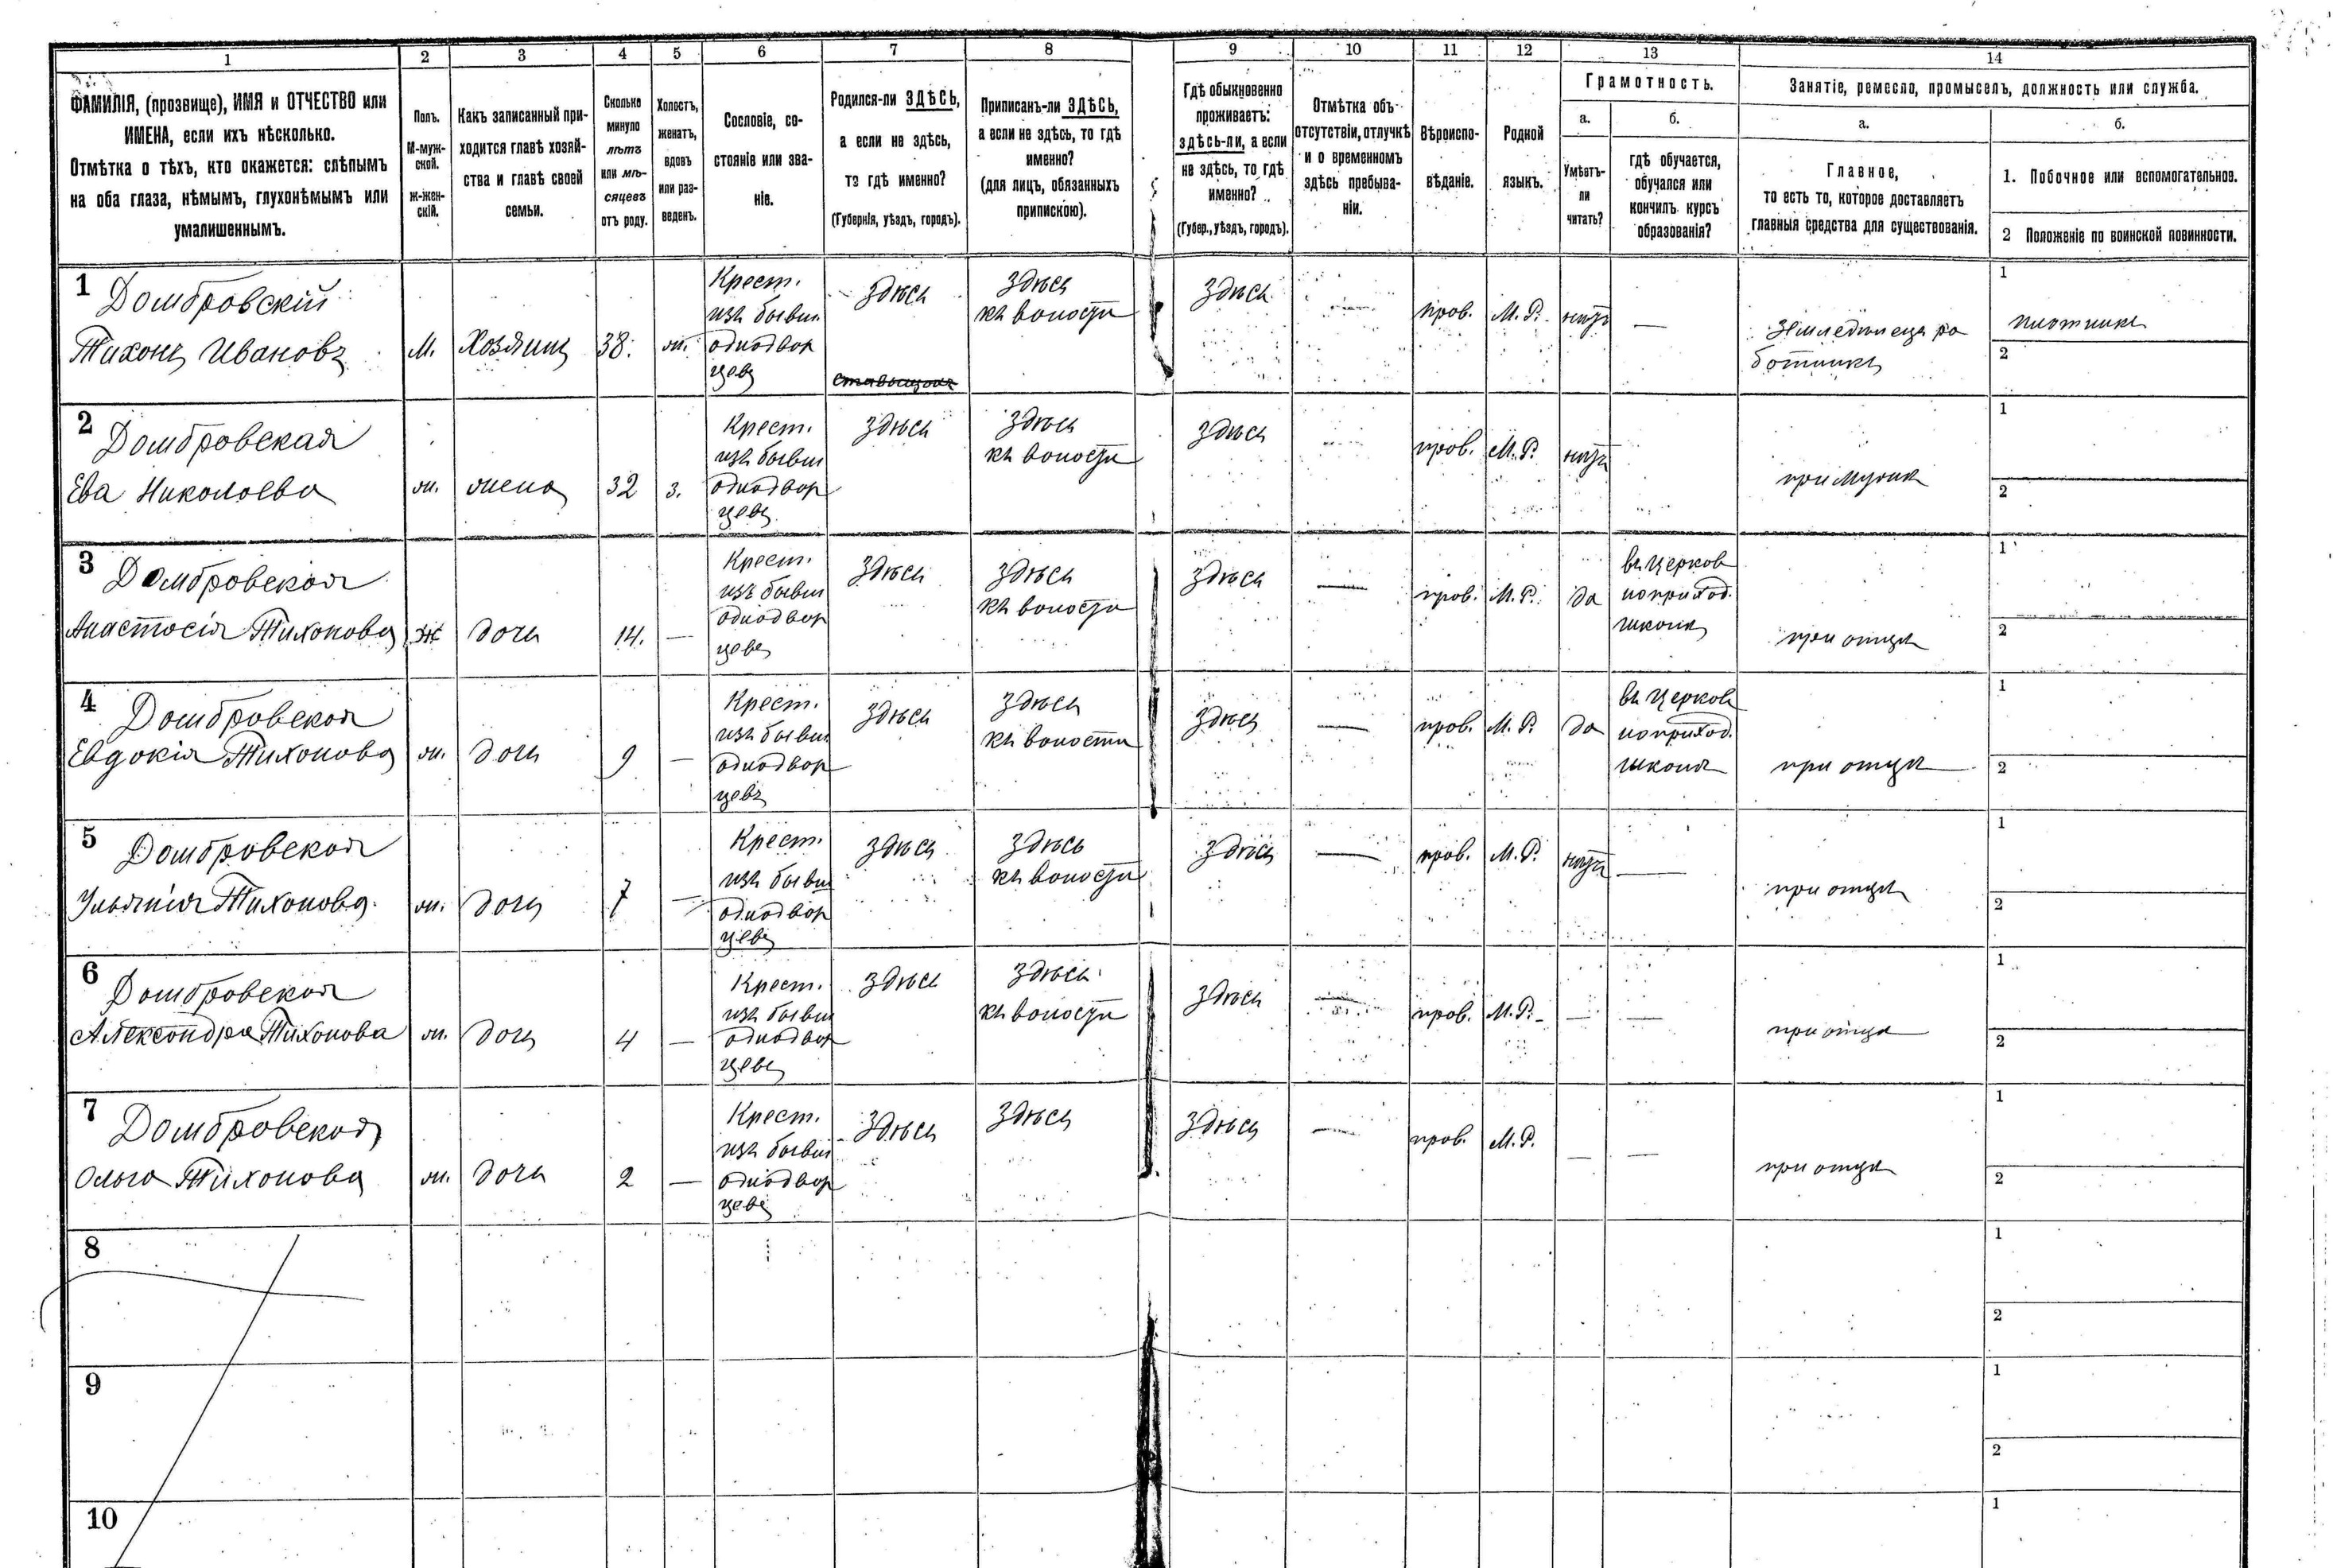 1 2 3 4 5 6 7 8 9 10 11 12 13 14
ФАМИЛІЯ, (прозвище), ИМЯ и ОТЧЕСТВО или
ИМЕНА, если ихъ нѣсколько.
Отмѣтка о тѣхъ, кто окажется: слѣпымъ
на оба глаза, нѣмымъ, глухонѣмымъ или
умалишеннымъ.
Полъ.
М-муж-
ской.
Ж-жен-
скій.
Какъ записанный при-
ходится главѣ хозяй-
ства и главѣ своей
семьи.
Сколько
минуло
лѣтъ
или мѣ-
сяцевъ
отъ роду.
Холостъ,
женатъ,
вдовъ
или раз-
веденъ.
Сословіе, со-
стояніе или зва-
ніе.
Родился-ли ЗДѢСЬ,
а если не здѣсь,
то гдѣ именно?
(Губернія, уѣздъ, городъ).
Приписанъ-ли ЗДѢСЬ,
а если не здѣсь, то гдѣ
именно?
(для лицъ, обязанныхъ
припискою).
Гдѣ обыкновенно
проживаетъ:
здѣсь-ли, а если
не здѣсь, то гдѣ
именно?
(Губер., уѣздъ, городъ).
Отмѣтка объ
отсутствіи, отлучкѣ
и о временномъ
здѣсь пребыва-
ніи.
Вѣроиспо-
вѣданіе.
Родной
языкъ.
Грамотность.
а.
Умѣетъ-
ли
читать?
б.
гдѣ обучается,
обучался или
кончилъ курсъ
образованія?
Занятіе, ремесло, промыселъ, должность или служба.
а.
Главное,
то есть то, которое доставляетъ
главныя средства для существованія.
б.
1. Побочное или вспомогательное.
2 Положеніе по воинской повинности.
1
Домбровскій
Тихонъ Ивановъ
М.
Хозяинъ
38.
ж.
Крест.
изъ бывш
однодвор
цевъ
здѣсь
здѣсь
къ волости
здѣсь
—
прав.
М. Р.
нѣтъ
—
Земледѣлецъ ра
ботникъ
1
плотникъ
2
2
Домбровская
Ева Николаева
ж.
жена
32
з.
Крест.
изъ бывш
однодвор
цевъ
здѣсь
здѣсь
къ волости
здѣсь
прав.
М. Р.
нѣтъ
при мужѣ
1
2
3
Домбровская
Анастасія Тихонова
Ж
дочь
14.
—
Крест.
изъ бывш
однодвор
цевъ
здѣсь
здѣсь
къ волости
здѣсь
—
прав.
М. Р.
да
въ церков
ноприход.
школѣ
при отцѣ
1
2
4
Домбровская
Евдокія Тихонова
ж.
дочь
9
—
Крест.
изъ бывш
однодвор
цевъ
здѣсь
здѣсь
къ волости
здѣсь
—
прав.
М. Р.
да
въ церков
ноприход.
школѣ
при отцѣ
1
2
5
Домбровская
Ульянія Тихонова.
ж.
дочь
7
—
Крест.
изъ бывш
однодвор
цевъ
здѣсь
здѣсь
къ волости
здѣсь
—
прав.
М. Р.
нѣтъ
—
при отцѣ
1
2
6
Домбровская
Александра Тихонова
ж.
дочь
4
—
Крест.
изъ бывш
однодвор
цевъ
здѣсь
здѣсь
къ волости
здѣсь
—
прав.
М. Р.
—
—
при отцѣ
1
2
7
Домбровская
Ольга Тихонова
ж.
дочь
2
—
Крест.
изъ бывш
однодвор
цевъ
здѣсь
здѣсь
здѣсь
—
прав.
М. Р.
—
—
при отцѣ
1
2
8
1
2
9
1
2
10
1